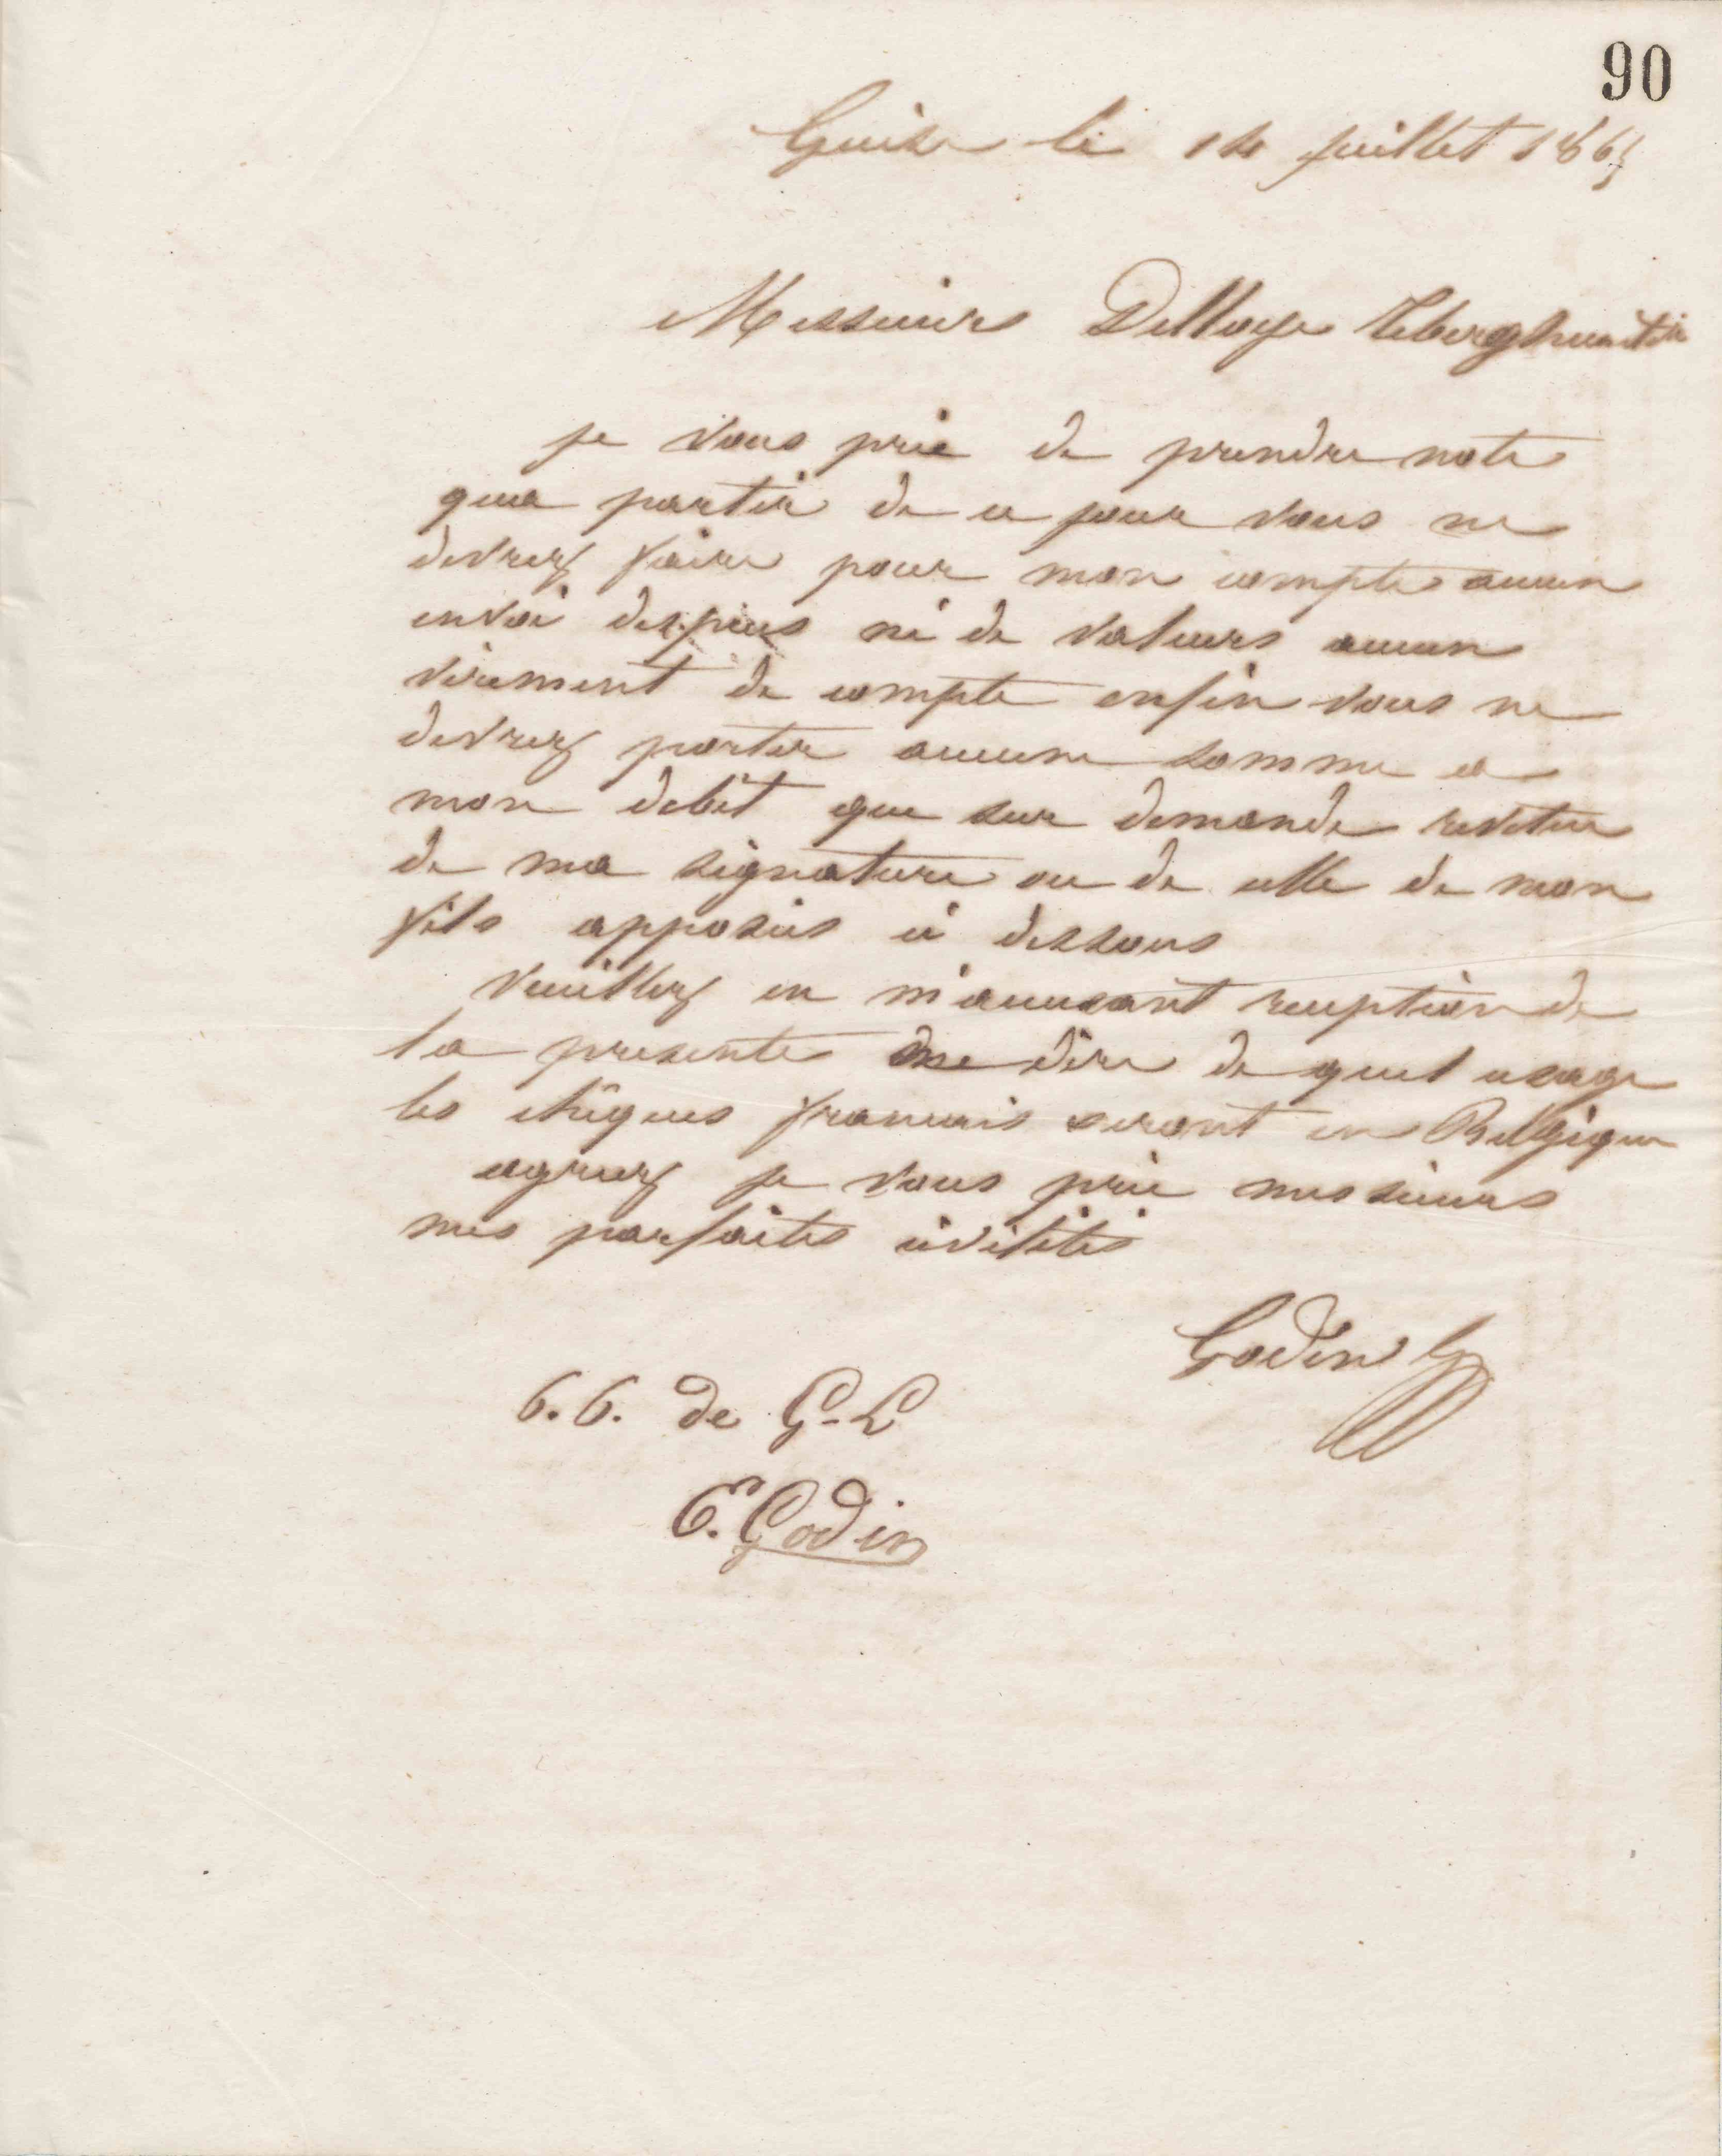 90
Guise le 14 juillet 1865
Messieurs Delloye Tiberghien & Cie
je vous prie de prendre note
qua partir de ce jour vous ne
devrez faire pour mon compte aucun
envoi despèces ni de valeurs aucun
virement de compte enfin vous ne
devrez porter aucune somme a
mon debit que sur demande revetue
de ma signature ou de celle de mon
fils apposées ci dessous
Veuillez en m'accusant reception de
la presente me dire de quel usage
les chèques francais seront en Belgique
agreez je vous prie messieurs
mes parfaites civilités
Godin
de G-L
E. Godin